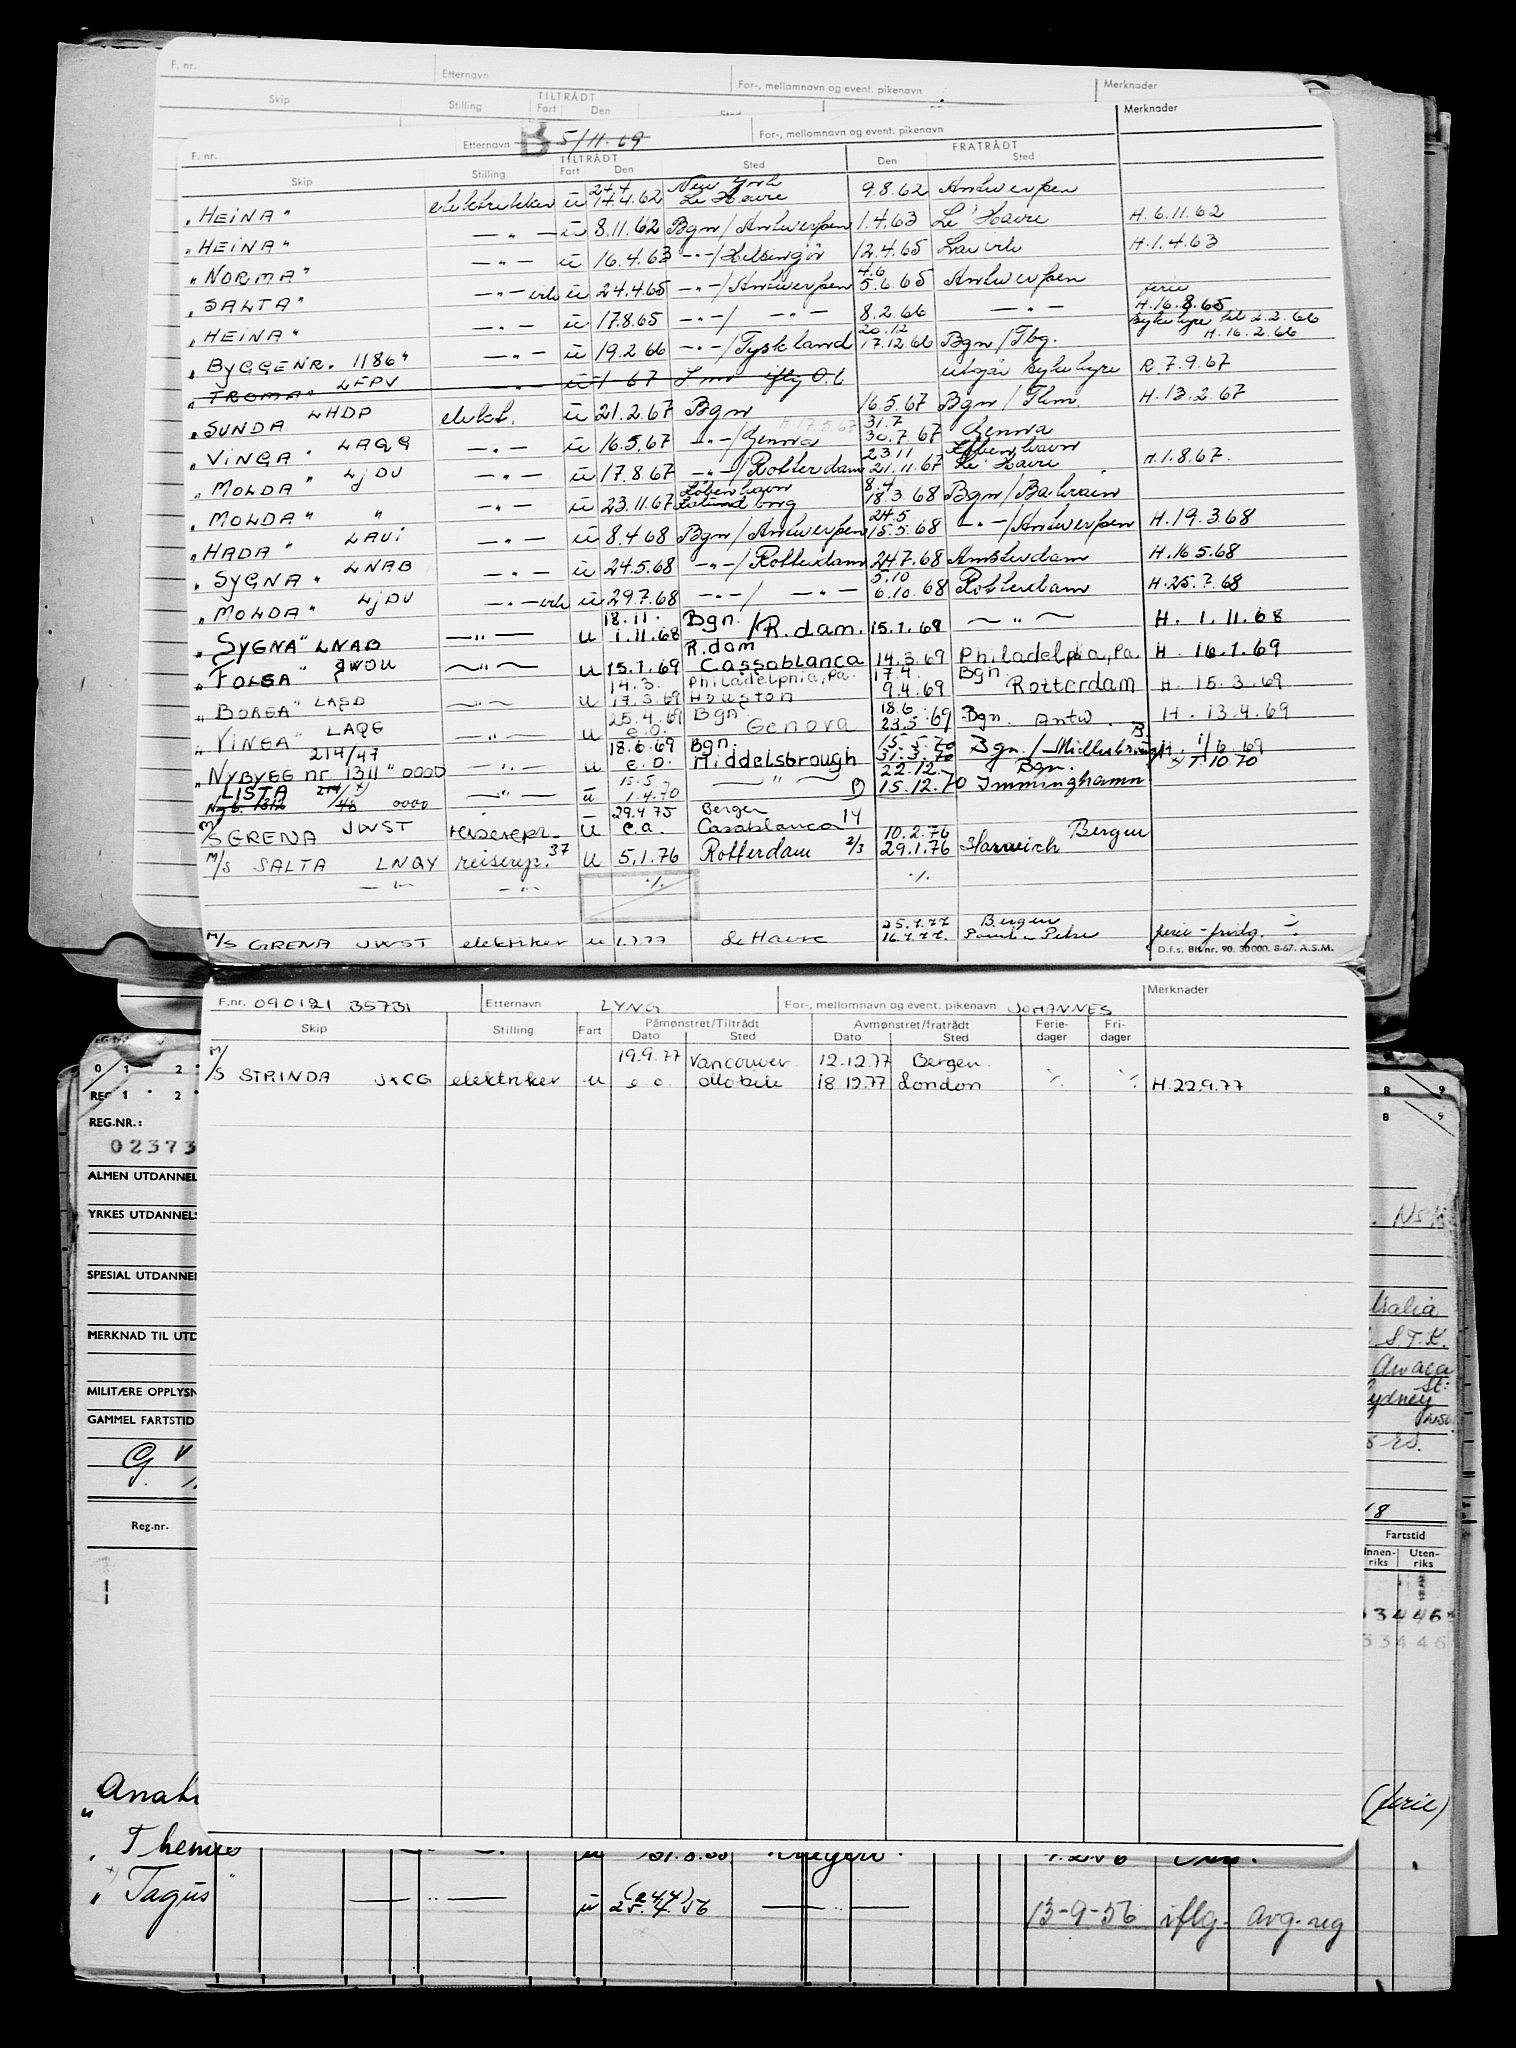 F. nr. Etternavn For-, mellomnavn og event. pikenavn Merknader
Skip Stilling TILTRÅDT Fart Den
Merknader
F. nr. Etternavn B 5/11.69 For-, mellomnavn og event. pikenavn
Skip Stilling TILTRÅDT Fart Den Sted FRATRÅDT Den Sted
24.4 New York
"HEINA" elektrikker u 14.4.62 Le Havre 9.8.62 Antwerpen
"HEINA" —"— u 8.11.62 Bgn/Antwerpen 1.4.63 Le Havre H. 6.11.62
"NORMA" —"— u 16.4.63 —"—/Helsingör 12.4.65 H. 1.4.63
4.6
"SALTA" —"— u 24.4.65 —"—/Antwerpen 5.6.65 Antwerpen
ferie
"HEINA" —"— u 17.8.65 —"—/ —"— 8.2.66 —"— H. 16.8.65
20.12 Sykehyre til 2.2.66
"BYGGENR. 1186" —"— u 19.2.66 —"—/Tyskland 17.12.66 Bgn/Tbg. H. 16.2.66
"TROMA" LFPV —"— u 1 67 utgår sykehyre R 7.9.67
"SUNDA LHDP elekt. u 21.2.67 Bgn 16.5.67 Bgn/Thm. H. 13.2.67
H. 17.5.67 31.7
"VINGA" LAQG —"— u 16.5.67 —"—/Genova 30.7.67 Genova
23.11 København
"MOLDA" LJDU —"— u 17.8.67 —"—/Rotterdam 21.11.67 Le Havre H. 1.8.67.
København 8.4
"MOLDA" " —"— u 23.11.67 18.3.68 Bgn/Bahrain
24.5
"HADA" LAUI —"— u 8.4.68 Bgn/Antwerpen 15.5.68 —"—/Antwerpen H. 19.3.68
"SYGNA" LNAB —"— u 24.5.68 —"—/Rotterdam 24.7.68 Amsterdam H. 16.5.68
5.10
"MOLDA" LJDU —"— u 29.7.68 —"—/ —"— 6.10.68 Rotterdam H. 25.7.68
18.11. Bgn.
"SYGNA" LNAB —"— u 1.11.68 /R.dam. 15.1.69 —"— H. 1.11.68
R.dam
"FOLGA" JWOU —"— u 15.1.69 Cassablanca 14.3.69 Philadelphia, Pa. H. 16.1.69
14.3. Philadelphia, Pa. 17.4. Bgn.
"BORGA" LASD —"— u 17.3.69 Houston 9.4.69 Rotterdam H. 15.3.69
25.4.69 Bgn 18.6
"VINGA" LAQG —"— u e.o. Genova 23.5.69 Bgn. Antw. H. 13.4.69
214/47 18.6.69 Bgn. 15.5.70 Bgn./Middlesbrough
"NYBYGG nr. 1311" OOOO —"— u e.o. Middelsbrough 31.3.70 H. 1/6.69
LISTA 214/48 15.5 22.12. Bgn. T 10 70
Nyb. 1312 OOOO —"— u 1.4.70 —"— 15.12.70 Imminghamn
29.4.75 Bergen
M/S GRENA JWST reiserepr. u e.o. Casablanca 14 10.2.76 Bergen
M/S SALTA LNQY reiserep. 37 u 5.1.76 Rotterdam 2/3 29.1.76 Harwich
—"— —"— ./. ./.
25.7.77 Bergen
M/S GRENA JWST elektriker u 1.7.77 Le Havre 16.7.77. ferie - fridg.
D.f.s. Bl. nr. 90. 30 000. 8-67. A.S.M.
F.nr. 090121 35731 Etternavn LYNG For-, mellomnavn og event. pikenavn JOHANNES Merknader
Skip Stilling Fart Påmønstret/Tiltrådt Dato Sted Avmønstret/fratrådt Dato Sted Ferie-dager Fri-dager
19.9.77 Vancouver 12.12.77 Bergen
M/S STRINDA JXCG elektriker u e.o. Mobile 18.12.77 London ./. ./. H.22.9.77
REG.NR.:
02373
ALMEN UTDANNEL
YRKES UTDANNELS
SPESIAL UTDANNEL
MERKNAD TIL UTD
MILITÆRE OPPLYSN
GAMMEL FARTSTID
Reg.nr.
S.T.K.
Awaca
St.
Sydney
Fartstid
Innen-riks Uten-riks
33446
33446
"Anat (ferie)
"Themis
(24.4)
"Tagus" —"— u 25.4.56 —"— 13-9-56 iflg. avg. reg